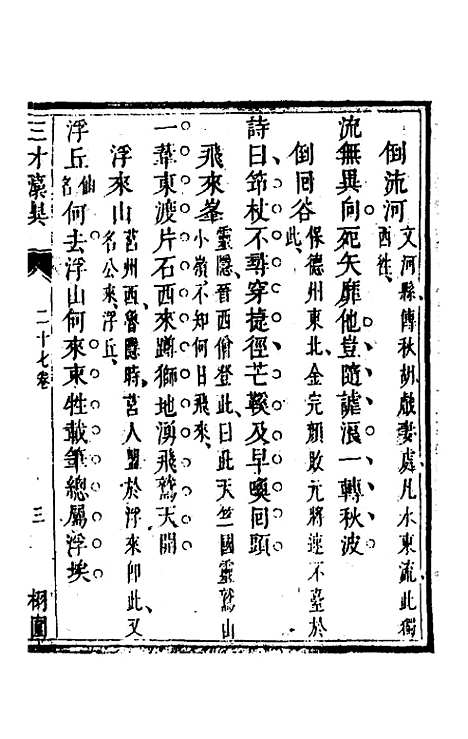 倒流河
文河縣傳秋胡戲妻處凡水東流此獨
西徃
流無異向死矢靡他豈隨謔浪一轉秋波
倒回谷
保德州東北金完顏敗元將速不臺於
此
詩曰笻杖不尋穿捷徑芒鞵及早喚回頭
飛來峯
靈隱晉西僧登此曰此天竺國靈鷲山
小嶺不知何日飛來
一葦東渡片石西來蹲獅地湧飛鷲天開
浮來山
莒州西魯隱時莒人盟於浮來卽此又
名公來浮丘
浮丘
仙
名
何去浮山何來東牲載筆總屬浮埃
三才藻異
二十七卷
三
栩園